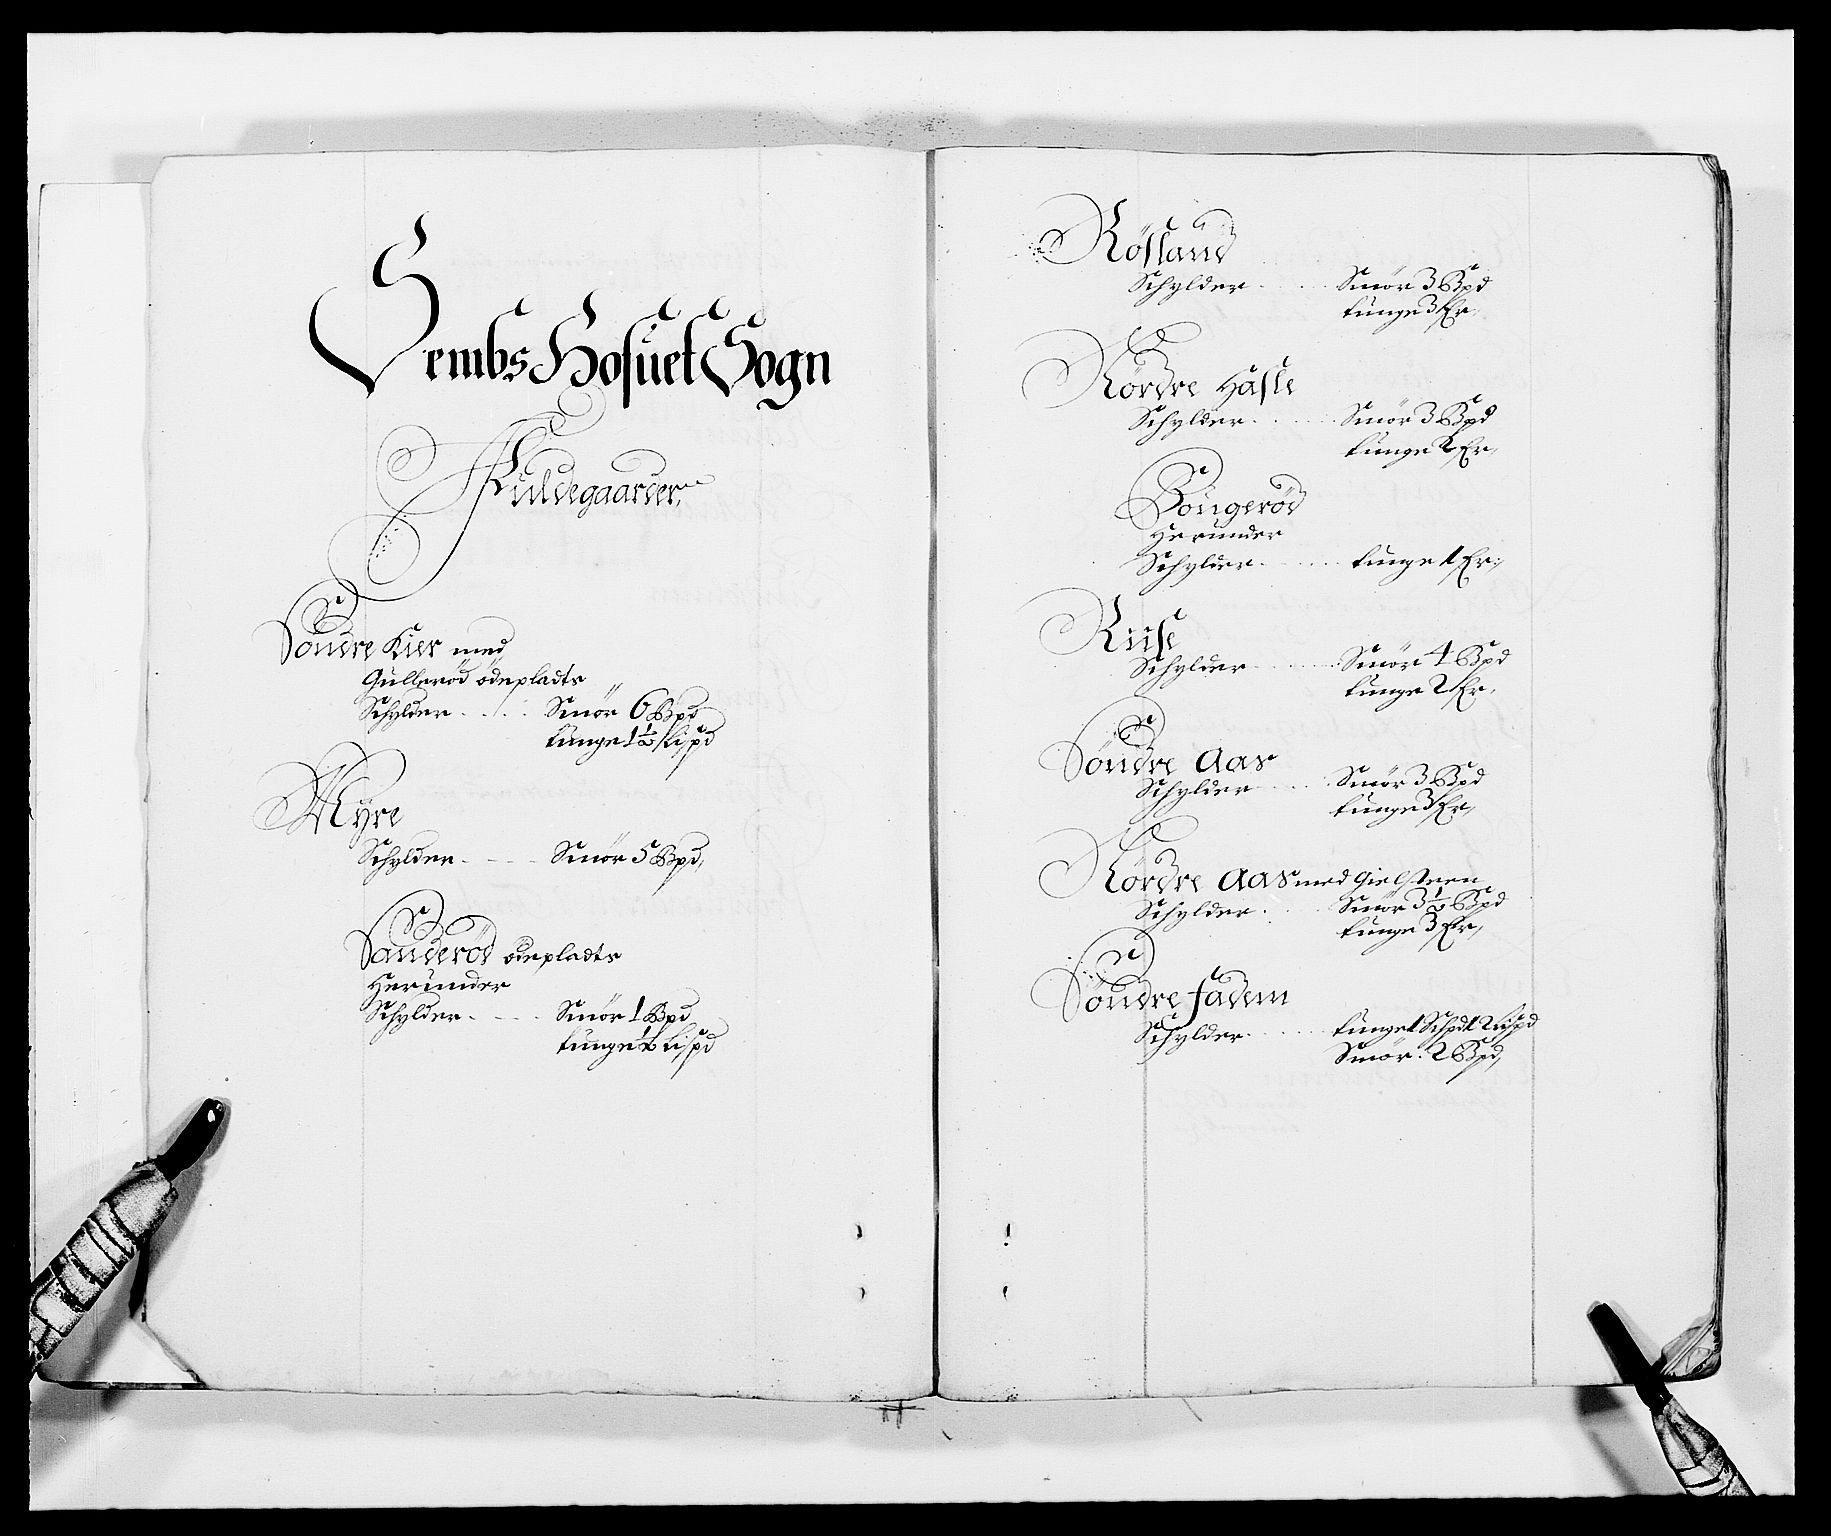 Sembs Hosuet Sogn
Fuldegaarder,
Söndre Kier med
Gulleröd ödepladts
Schylder . . . . Smör 6 Bpd
tunge 1½ Lispd
Myre
Schylder . . . Smör 5 Bpd,
Sanderöd ödepladts
Herunder
Schylder . . . Smör 1 Bpd
tunge ½ Lispd
Rösland
Schylder . . . Smör 3 Bpd
tunge 3 Er,
Nördre Hasle
Schylder . . . Smör 3 Bpd
tunge 2 Er,
Böngeröd
Herunder
Schylder . . . tunge 1 Er,
Riise
Schylder . . . Smör 4 Bpd
tunge 2 Er,
Söndre Aas
Schylder . . . Smör 3 Bpd
tunge 3 Er,
Nördre Aas med Gielsteen
Schylder . . . Smör 3½ Bpd
tunge 3 Er,
Söndre fadem
Schylder . . . tunge 1 Schpd 2 Lispd
Smör . 2 Bpd,